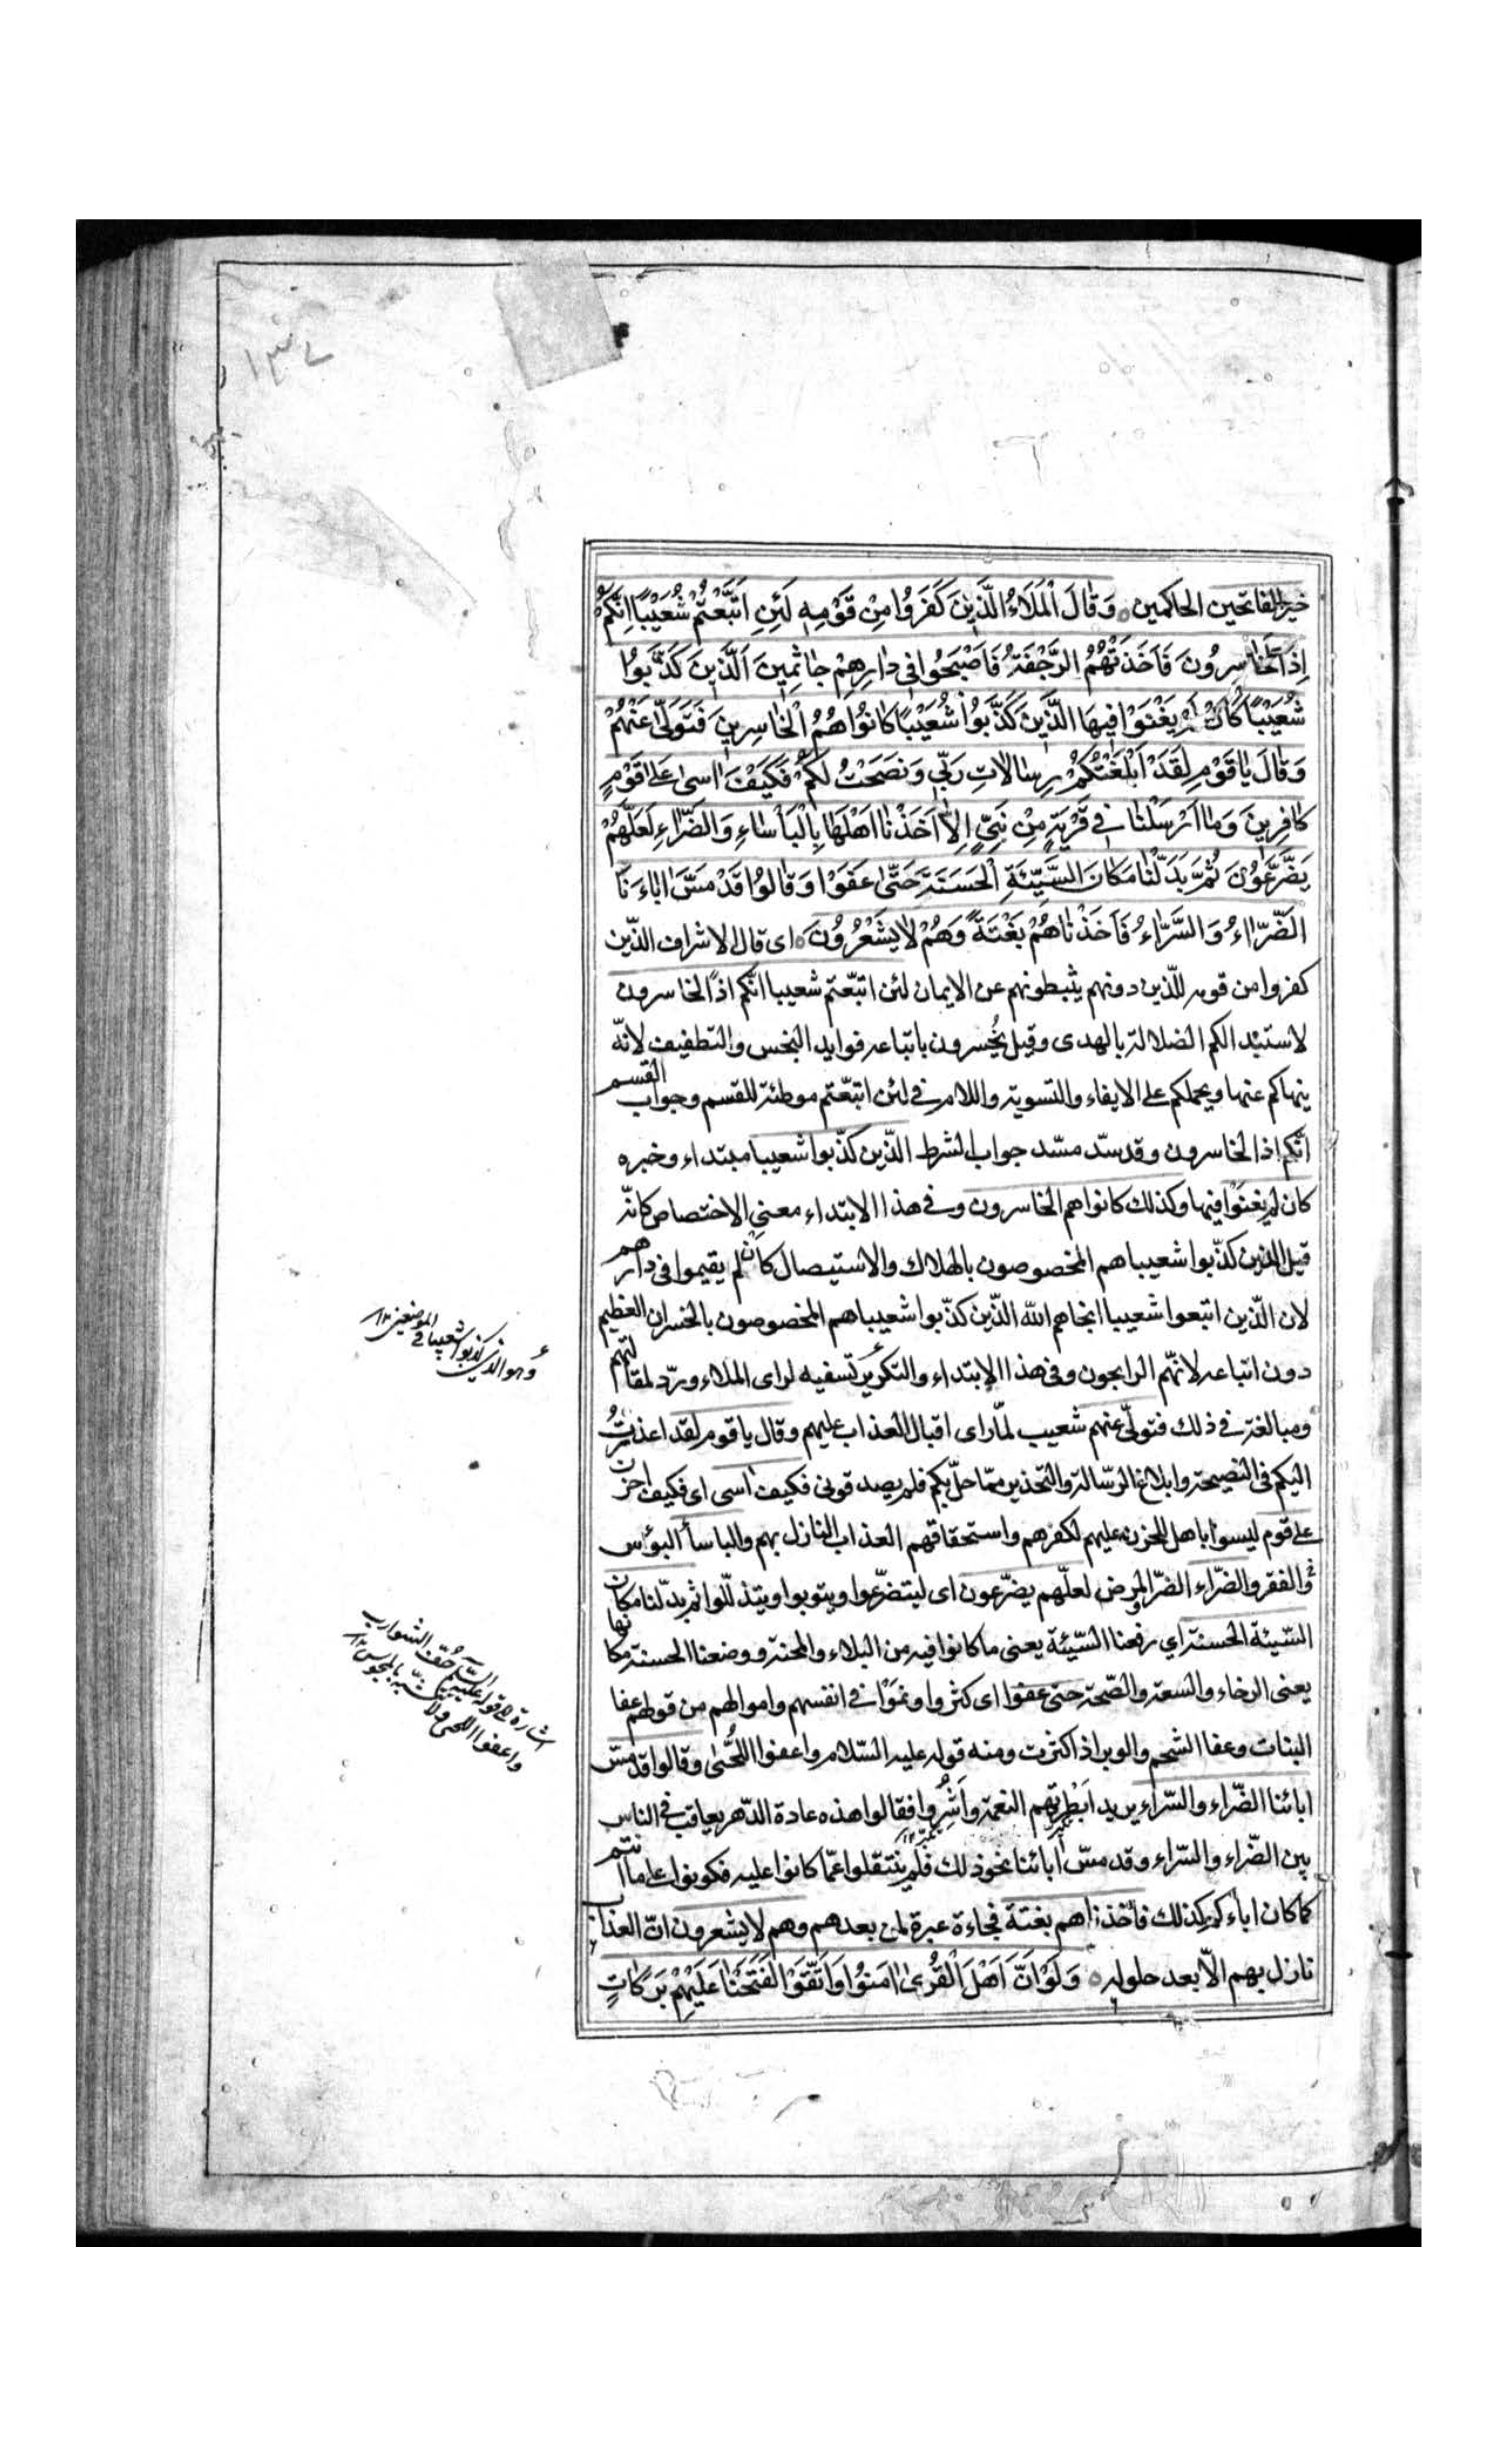 ١٣٧
خير الفاتحين الحاكمين وَقَالَ الْمَلَاءُ الَّذِينَ كَفَرُوا مِنْ قَوْمِهِ لَئِنِ اتَّبَعْتُمْ شُعَيْبًا اِنَّكُمْ
اِذًا لَخَاسِرُونَ فَاَخَذَتْهُمُ الرَّجْفَةُ فَاَصْبَحُوا فِى دَارِهِمْ جَاثِمِينَ اَلَّذِينَ كَذَّبُوا
شُعَيْبًا كَاَنْ لَمْ يَغْنَوْا فِيهَا الَّذِينَ كَذَّبُوا شُعَيْبًا كَانُوا هُمُ الْخَاسِرِينَ فَتَوَلّٰى عَنْهُمْ
وَقَالَ يَا قَوْمِ لَقَدْ اَبْلَغْتُكُمْ رِسَالَاتِ رَبِّى وَنَصَحْتُ لَكُمْ فَكَيْفَ اٰسىٰ عَلىٰ قَوْمٍ
كَافِرِينَ وَمَا اَرْسَلْنَا فِى قَرْيَةٍ مِنْ نَبِىٍّ اِلَّا اَخَذْنَا اَهْلَهَا بِالْبَأْسَاءِ وَالضَّرَّاءِ لَعَلَّهُمْ
يَضَّرَّعُونَ ثُمَّ بَدَّلْنَا مَكَانَ السَّيِّئَةِ الْحَسَنَةَ حَتّٰى عَفَوْا وَقَالُوا قَدْ مَسَّ اٰبَاءَنَا
الضَّرَّاءُ وَالسَّرَّاءُ فَاَخَذْنَاهُمْ بَغْتَةً وَهُمْ لَا يَشْعُرُونَ اى قال الاشراف الذّين
كفروا من قومه للّذين دونهم يثبطونهم عن الايمان لئن اتبّعتم شعيبا انّكم اذًا لخاسرون
لاستبدالكم الضلالة بالهدى وقيل يخُسرون باتباعه فوايد البخس والتطفيف لانّه
ينهاكم عنها ويحملكم على الايفاء والتسوية واللام في لئن اتبّعتم موطئة للقسم وجواب القسم
انّكم اذا لخاسرون وقد سدّ مسّد جواب الشرط الذّين كذّبوا شعيبا مبتداء وخبره
كان لم يغنَوْا فيها وكذلك كانوا هم الخاسرون وفي هذا الابتداء معنى الاختصاص كانّه
قيل الذين كذّبوا شعيبا هم المخصوصون بالهلاك والاستيصال كان لم يقيموا فى دارهم
لان الذّين اتبعوا شعيبا انجاهم الله الذّين كذّبوا شعيبا هم المخصوصون بالخسران العظيم
دون اتباعه لانهّم الرابحون وفى هذا الابتداء والتكرير تسفيه لراى الملاء وردّ لمقالتهم
ومبالغة في ذلك فتولّى عنهم شعيب لمّا راى اقبال العذاب عليهم وقال يا قوم لقد اعذرتُ
اليكم فى النصيحة وابلاغ الرّسالة والتّحذير ممّا حلّ بكم فلم يصدقونى فكيف اسى اى فكيف احزن
على قوم ليسوا باهل للحزن عليهم لكفرهم واستحقاقهم العذاب النازل بهم والباسأ البؤس
والفقر والضّراء الضّر والمرض لعلّهم يضرّعون اى ليتضرّعوا ويتوبوا ويتذلّلوا ثم بدّلنا مكان
السّيئة الحسنة اي رفعنا السّيّئة يعنى ما كانوا فيه من البلاء والمحنة ووضعنا الحسنة مكانها
يعنى الرخاء والسعة والصّحة حتى عفوا اى كثروا ونموَا في انفسهم واموالهم من قولهم عفا
النبات وعفا الشحم والوبر اذا كثرت ومنه قوله عليه السّلام واعفوا اللّحُى وقالوا قد مسّ
ابائنا الضّراء والسّراء يريد ابَطْرتهم النعمة واَشَرُوا فقالوا هذه عادة الدّهر يعاقب في الناس
بين الضّراء والسّراء وقد مسّ ابائنا نحو ذلك فلم ينتقلوا عمّا كانوا عليه فكونوا على ما انتم
كما كان اباءكم كذلك فاخذناهم بغتة فجاءة عبرة لمن بعدهم وهم لا يشعرون انّ العذاب
نازل بهم الاّ بعد حلوله وَلَوْ اَنَّ اَهْلَ الْقُرىٰ اٰمَنُوا وَاتَّقَوْا لَفَتَحْنَا عَلَيْهِمْ بَرَكَاتٍ
وهو الذين كذبوا شعيبا في الموضعين ١٢
اشارة الى قوله عليه السّلم حفّوا الشوارب
واعفوا اللحى ولا تشبّهوا بالمجوس ١٢